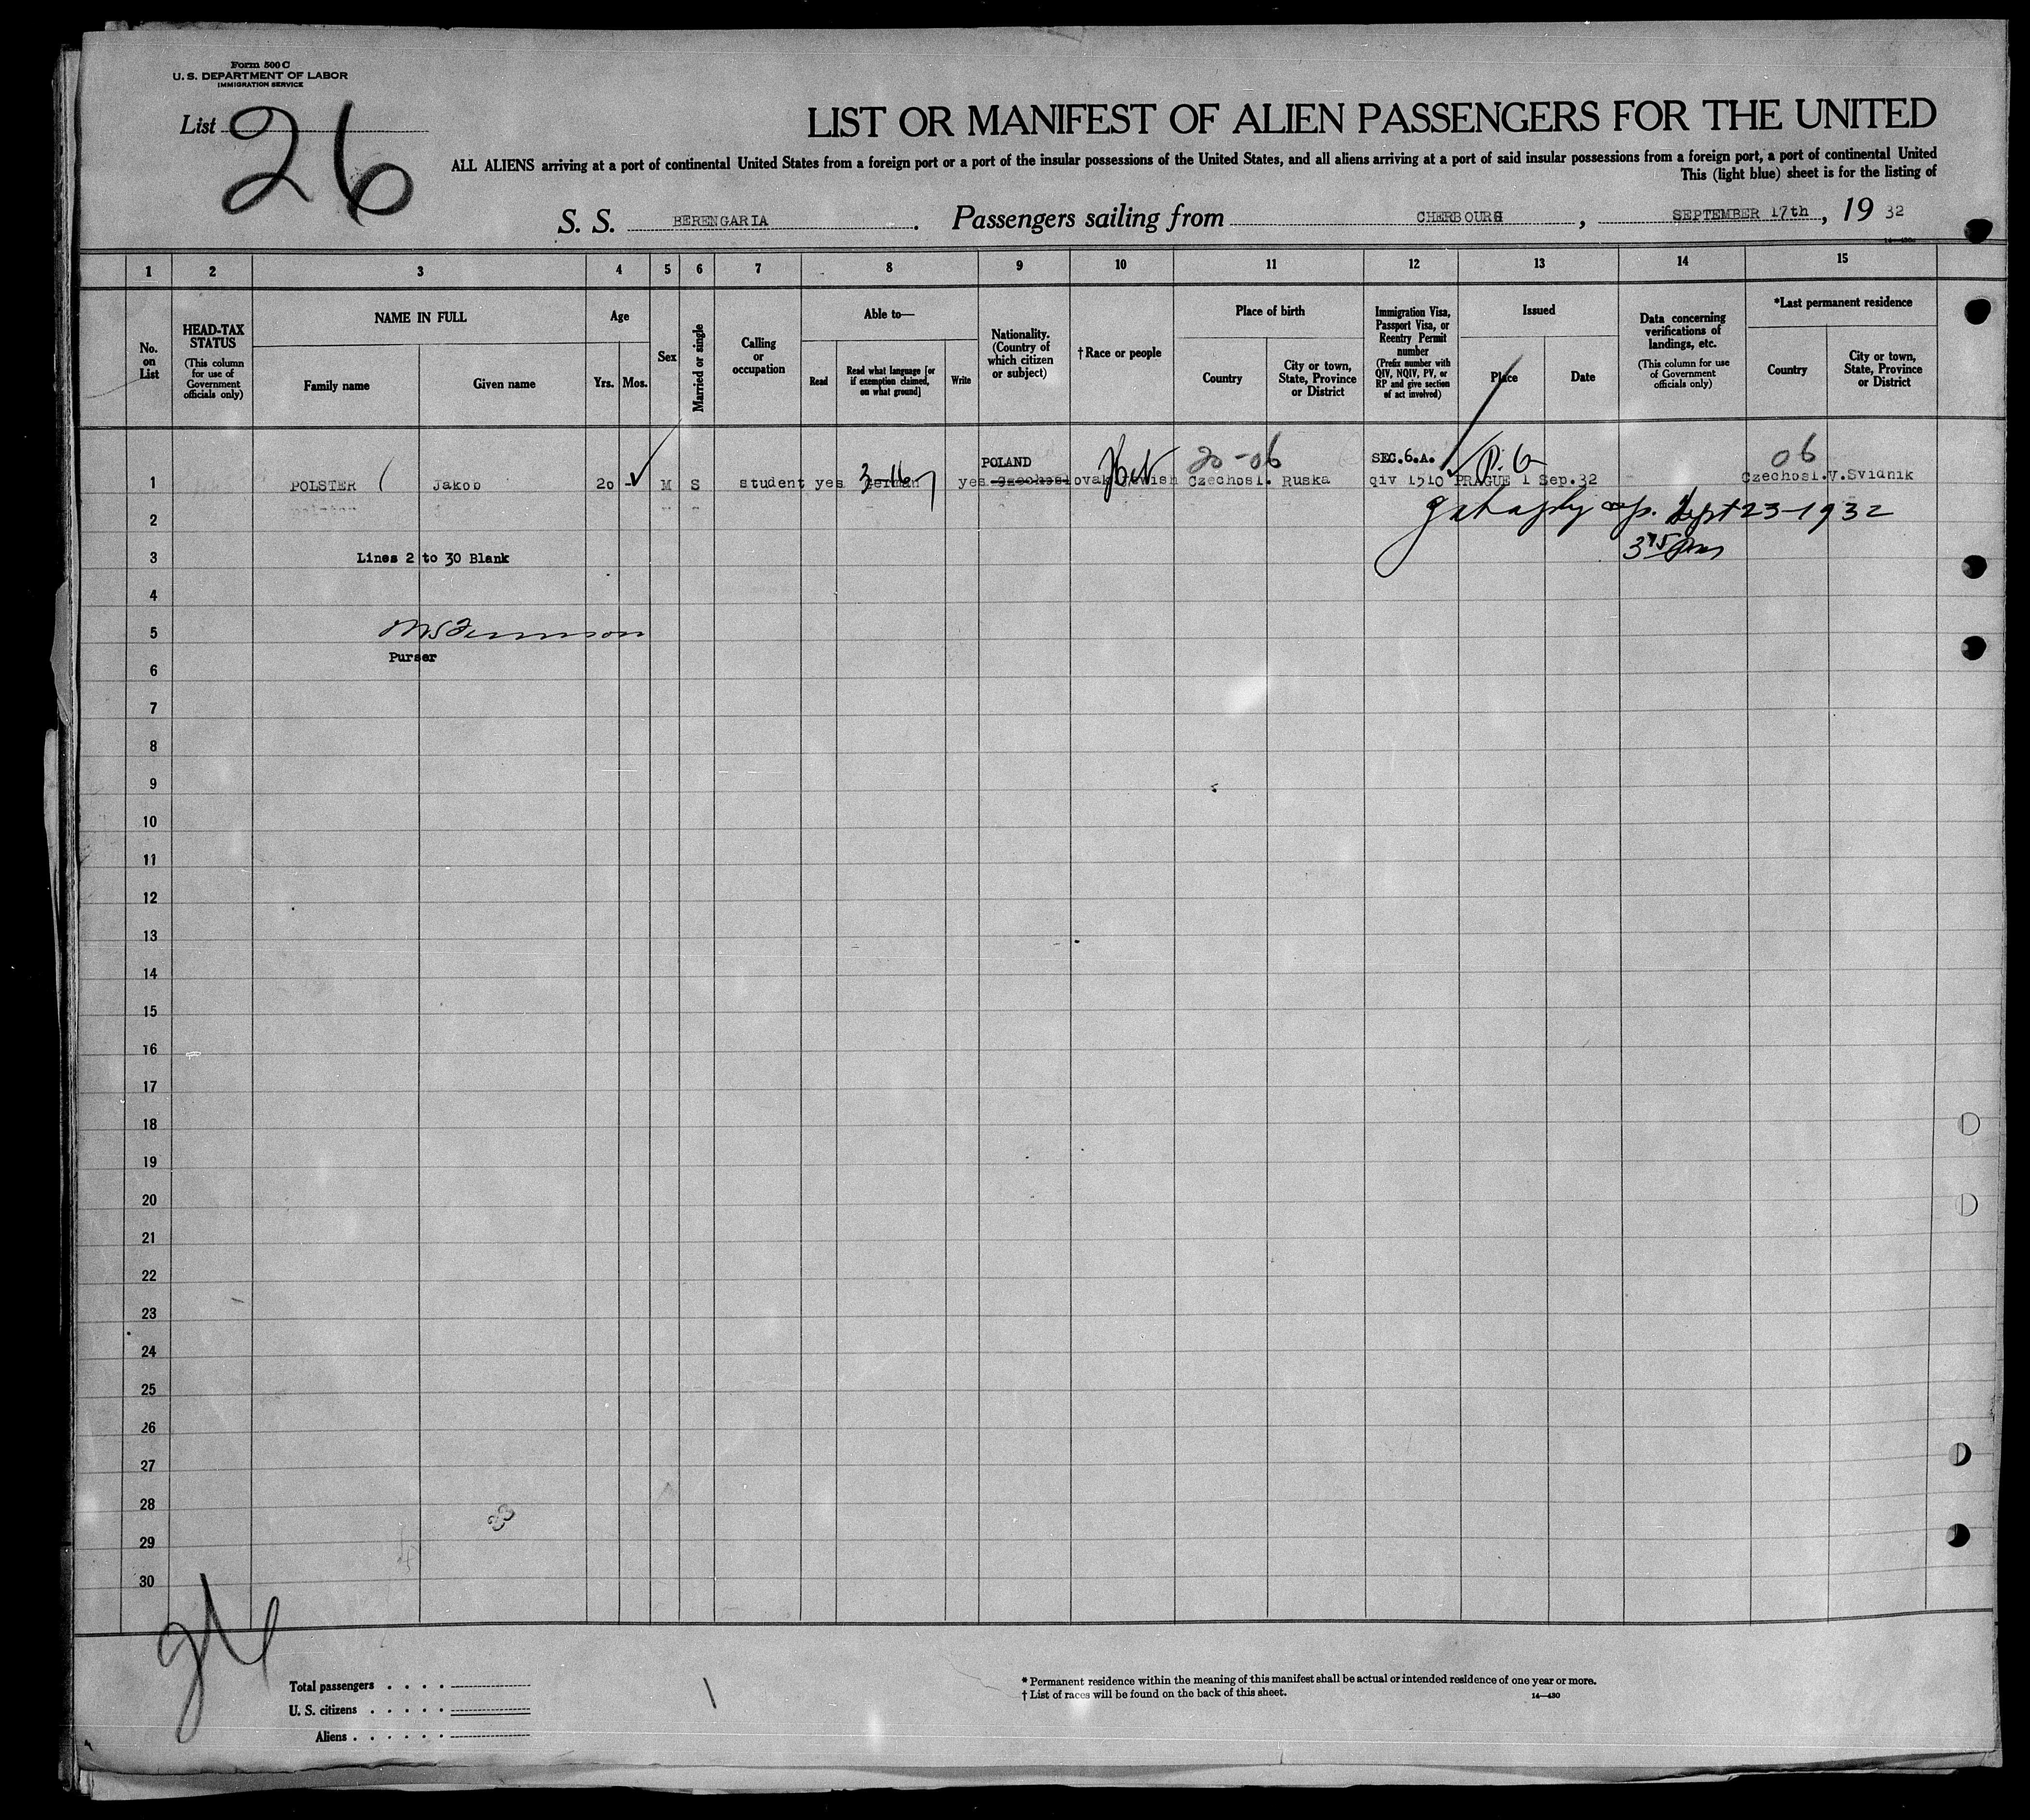 Form 500 C
U. S. DEPARTMENT OF LABOR
IMMIGRATION SERVICE
List 26
LIST OR MANIFEST OF ALIEN PASSENGERS FOR THE UNITED
ALL ALIENS arriving at a port of continental United States from a foreign port or a port of the insular possessions of the United States, and all aliens arriving at a port of said insular possessions from a foreign port, a port of continental United
This (light blue) sheet is for the listing of
S. S. BERENGARIA . Passengers sailing from CHERBOURG , SEPTEMBER 17th , 19 32
1 2 3 4 5 6 7 8 9 10 11 12 13 14 15
No. on List
HEAD-TAX STATUS (This column for use of Government officials only)
NAME IN FULL
Family name
Given name
Age
Yrs. Mos.
Sex
Married or single
Calling or occupation
Able to—
Read
Read what language [or if exemption claimed, on what ground]
Write
Nationality. (Country of which citizen or subject)
† Race or people
Place of birth
Country
City or town, State, Province or District
Immigration Visa, Passport Visa, or Reentry Permit number (Prefix number with QIV, NQIV, PV, or RP and give section of act involved)
Issued
Place
Date
Data concerning verifications of landings, etc. (This column for use of Government officials only)
*Last permanent residence
Country
City or town, State, Province or District
POLAND 20-06 SEC.6.A. 06
1 POLSTER Jakob 20 - M S student yes German yes Czechoslovak Jewish Czechosl. Ruska qiv 1510 PRAGUE 1 Sep.32 Czechosl. V.Svidnik
2 Sept 23-1932
3 Lines 2 to 30 Blank
4
5
Purser
6
7
8
9
10
11
12
13
14
15
16
17
18
19
20
21
22
23
24
25
26
27
28
29
30
Total passengers
U. S. citizens
Aliens
* Permanent residence within the meaning of this manifest shall be actual or intended residence of one year or more.
† List of races will be found on the back of this sheet.
14—430